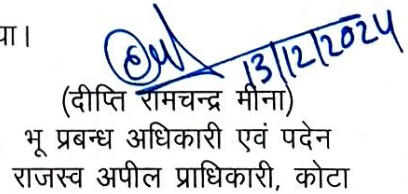 या।
13/12/2024
(दीप्ति रामचन्द्र मीना)
भू प्रबन्ध अधिकारी एवं पदेन
राजस्व अपील प्राधिकारी, कोटा